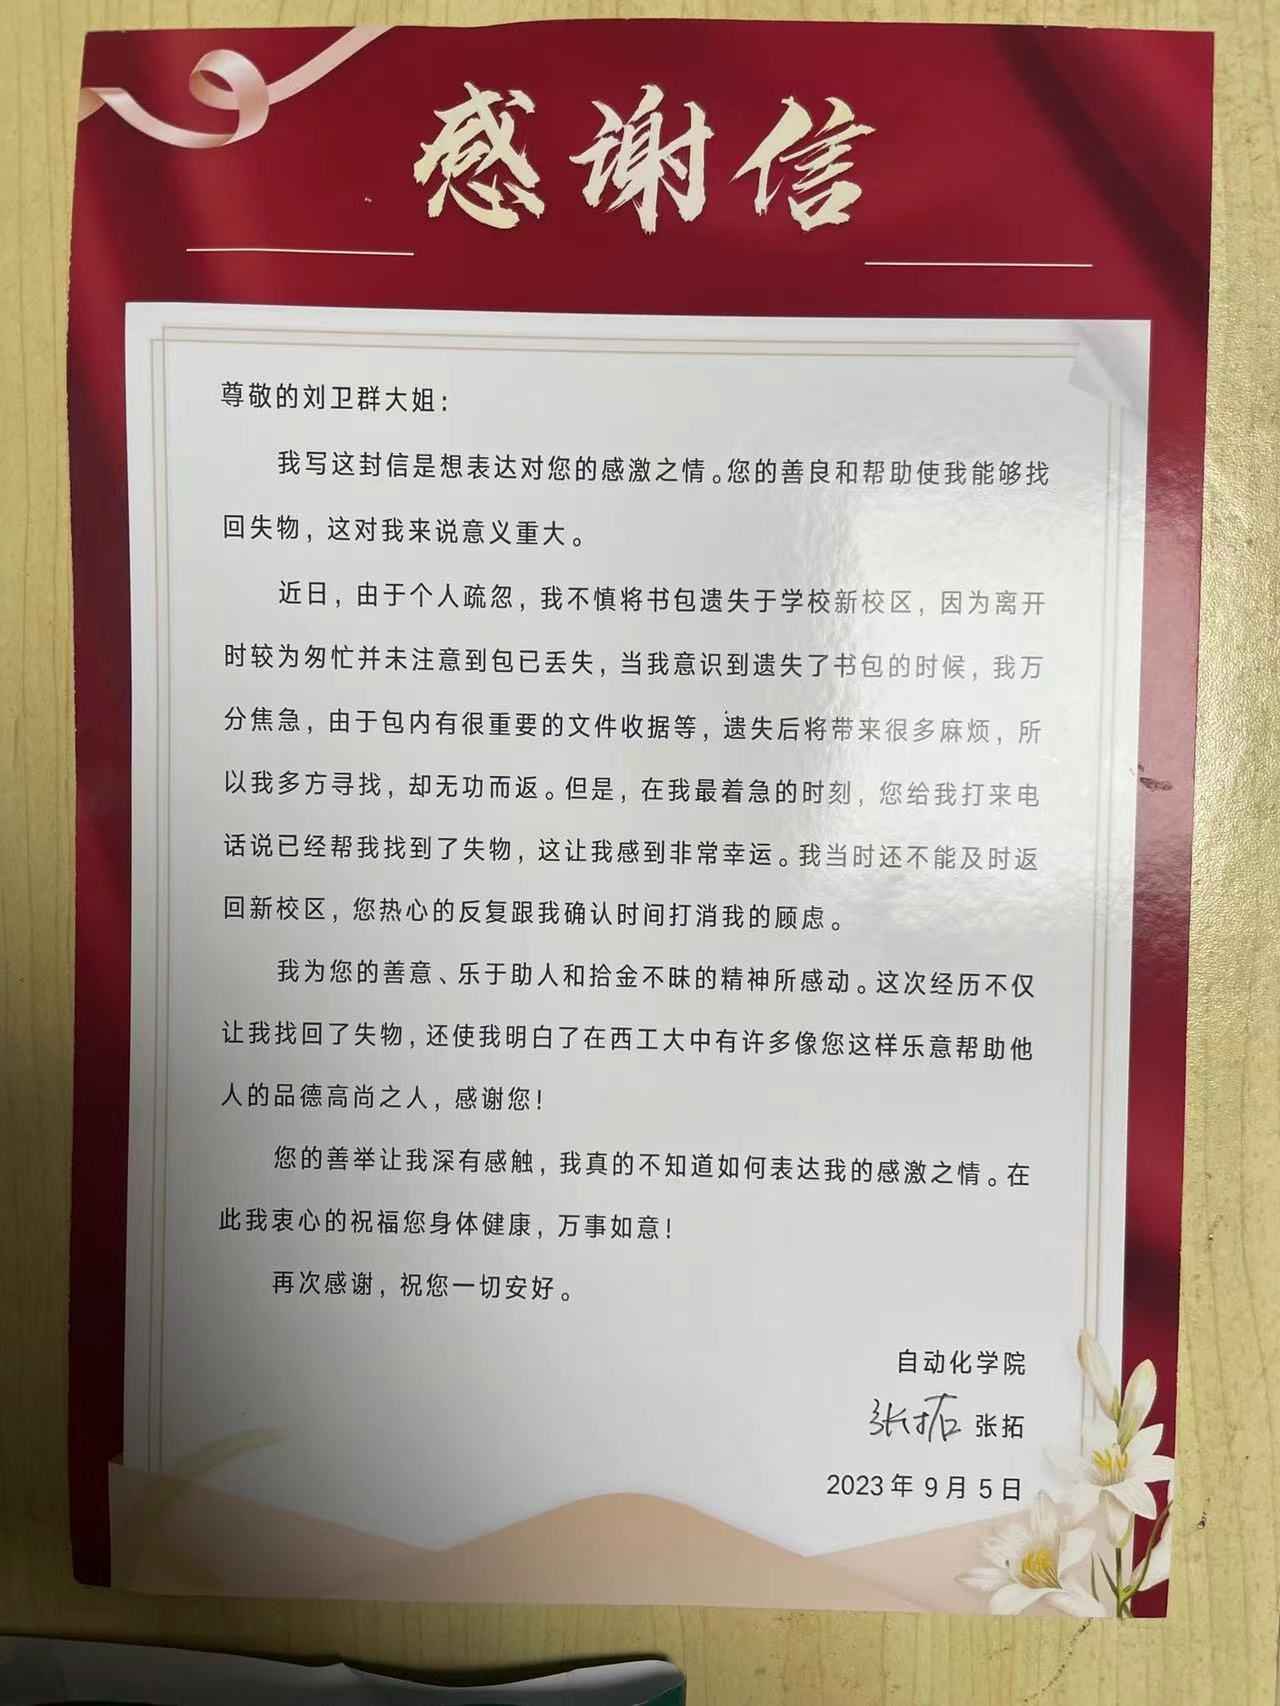 感谢信
尊敬的刘卫群大姐：
我写这封信是想表达对您的感激之情。您的善良和帮助使我能够找
回失物，这对我来说意义重大。
近日，由于个人疏忽，我不慎将书包遗失于学校新校区，因为离开
时较为匆忙并未注意到包已丢失，当我意识到遗失了书包的时候，我万
分焦急，由于包内有很重要的文件收据等，遗失后将带来很多麻烦，所
以我多方寻找，却无功而返。但是，在我最着急的时刻，您给我打来电
话说已经帮我找到了失物，这让我感到非常幸运。我当时还不能及时返
回新校区，您热心的反复跟我确认时间打消我的顾虑。
我为您的善意、乐于助人和拾金不昧的精神所感动。这次经历不仅
让我找回了失物，还使我明白了在西工大中有许多像您这样乐意帮助他
人的品德高尚之人，感谢您！
您的善举让我深有感触，我真的不知道如何表达我的感激之情。在
此我衷心的祝福您身体健康，万事如意！
再次感谢，祝您一切安好。
自动化学院
张拓 张拓
2023年9月5日